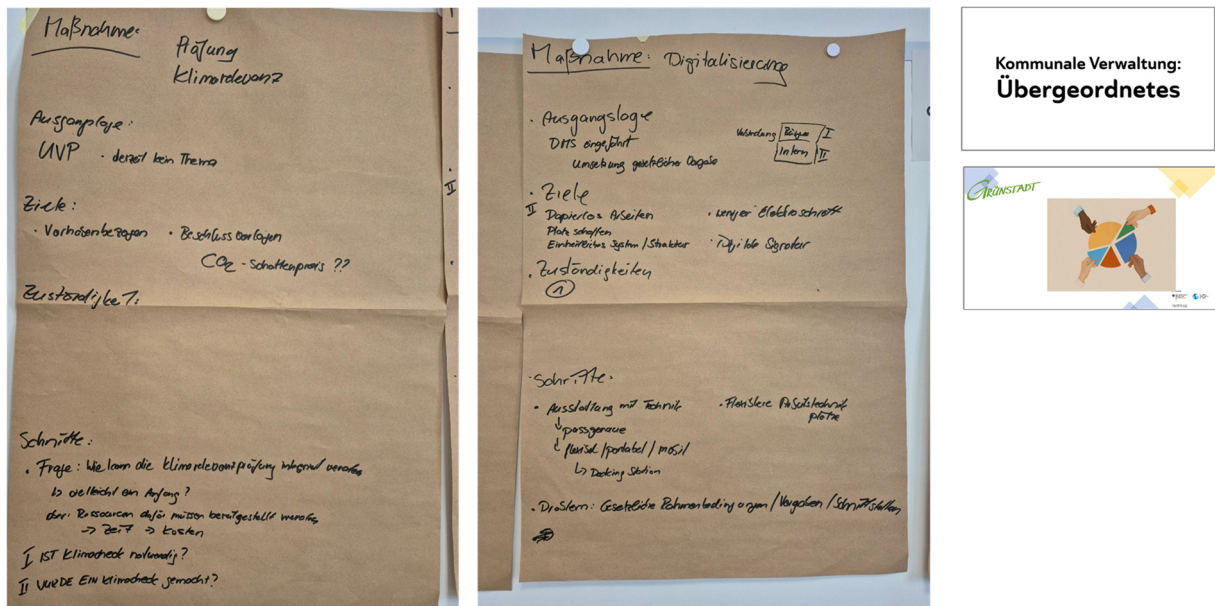 Maßnahme:
Prüfung
Klimarelevanz
Ausgangslage:
UVP · derzeit kein Thema
Ziele:
· Vorhabenbezogen · Beschlussvorlagen
CO2 - Schattenpreis ??
Zuständigkeit:
Schritte:
· Frage: Wie kann die Klimarelevanzprüfung integriert werden
↳ vielleicht am Anfang?
aber: Ressourcen dafür müssen bereitgestellt werden
→ Zeit → Kosten
I IST Klimacheck notwendig?
II WURDE EIN Klimacheck gemacht?
II
Maßnahme: Digitalisierung
· Ausgangslage
DMS eingeführt
Umsetzung gesetzlicher Vorgabe
Bürger I
Intern II
· Ziele
II
Papierlos Arbeiten
Platz schaffen
Einheitliches System / Struktur
· weniger Elektroschrott
· Digitale Signatur
· Zuständigkeiten
1
· Schritte:
· Ausstattung mit Technik
↓ passgenaue
↓ flexibel / portabel / mobil
↳ Docking Station
· Flexiblere Arbeitstechnik
plätze
· Gesetzliche Rahmenbedingungen / Vorgaben / Schnittstellen
Kommunale Verwaltung:
Übergeordnetes
GRÜNSTADT